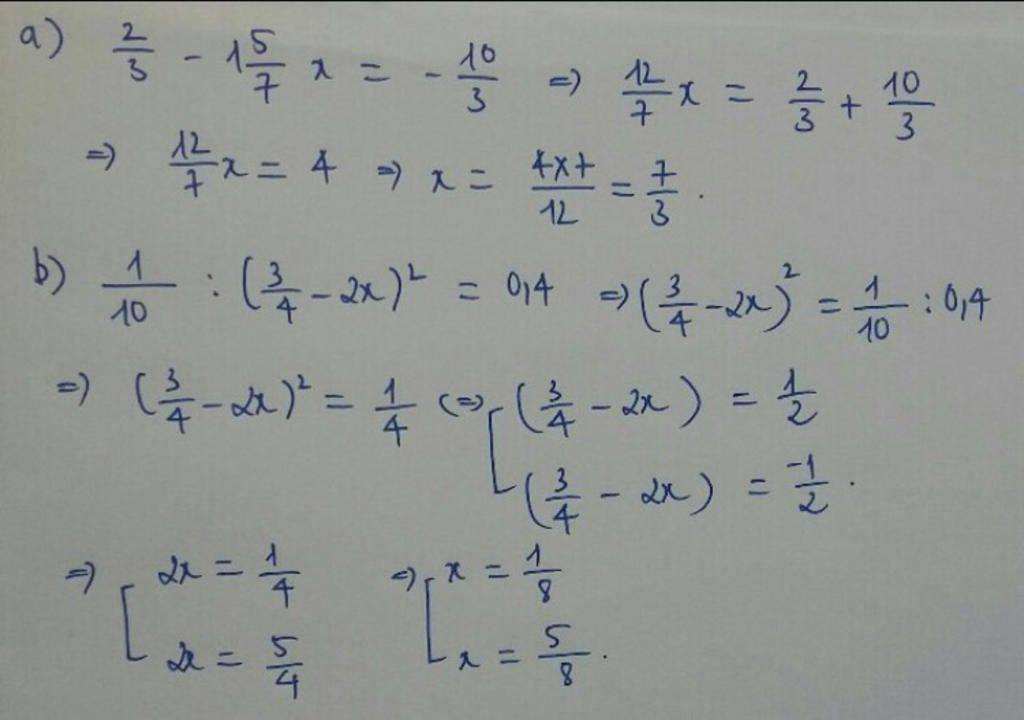 a) 2/3 - 1 5/7 x = - 10/3 => 12/7 x = 2/3 + 10/3
=> 12/7 x = 4 => x = 4x7/12 = 7/3 .
b) 1/10 : (3/4 - 2x)² = 0,4 => (3/4 - 2x)² = 1/10 : 0,4
=> (3/4 - 2x)² = 1/4 <=> [ (3/4 - 2x) = 1/2
(3/4 - 2x) = -1/2 .
=> [ 2x = 1/4 => [ x = 1/8
2x = 5/4 x = 5/8 .